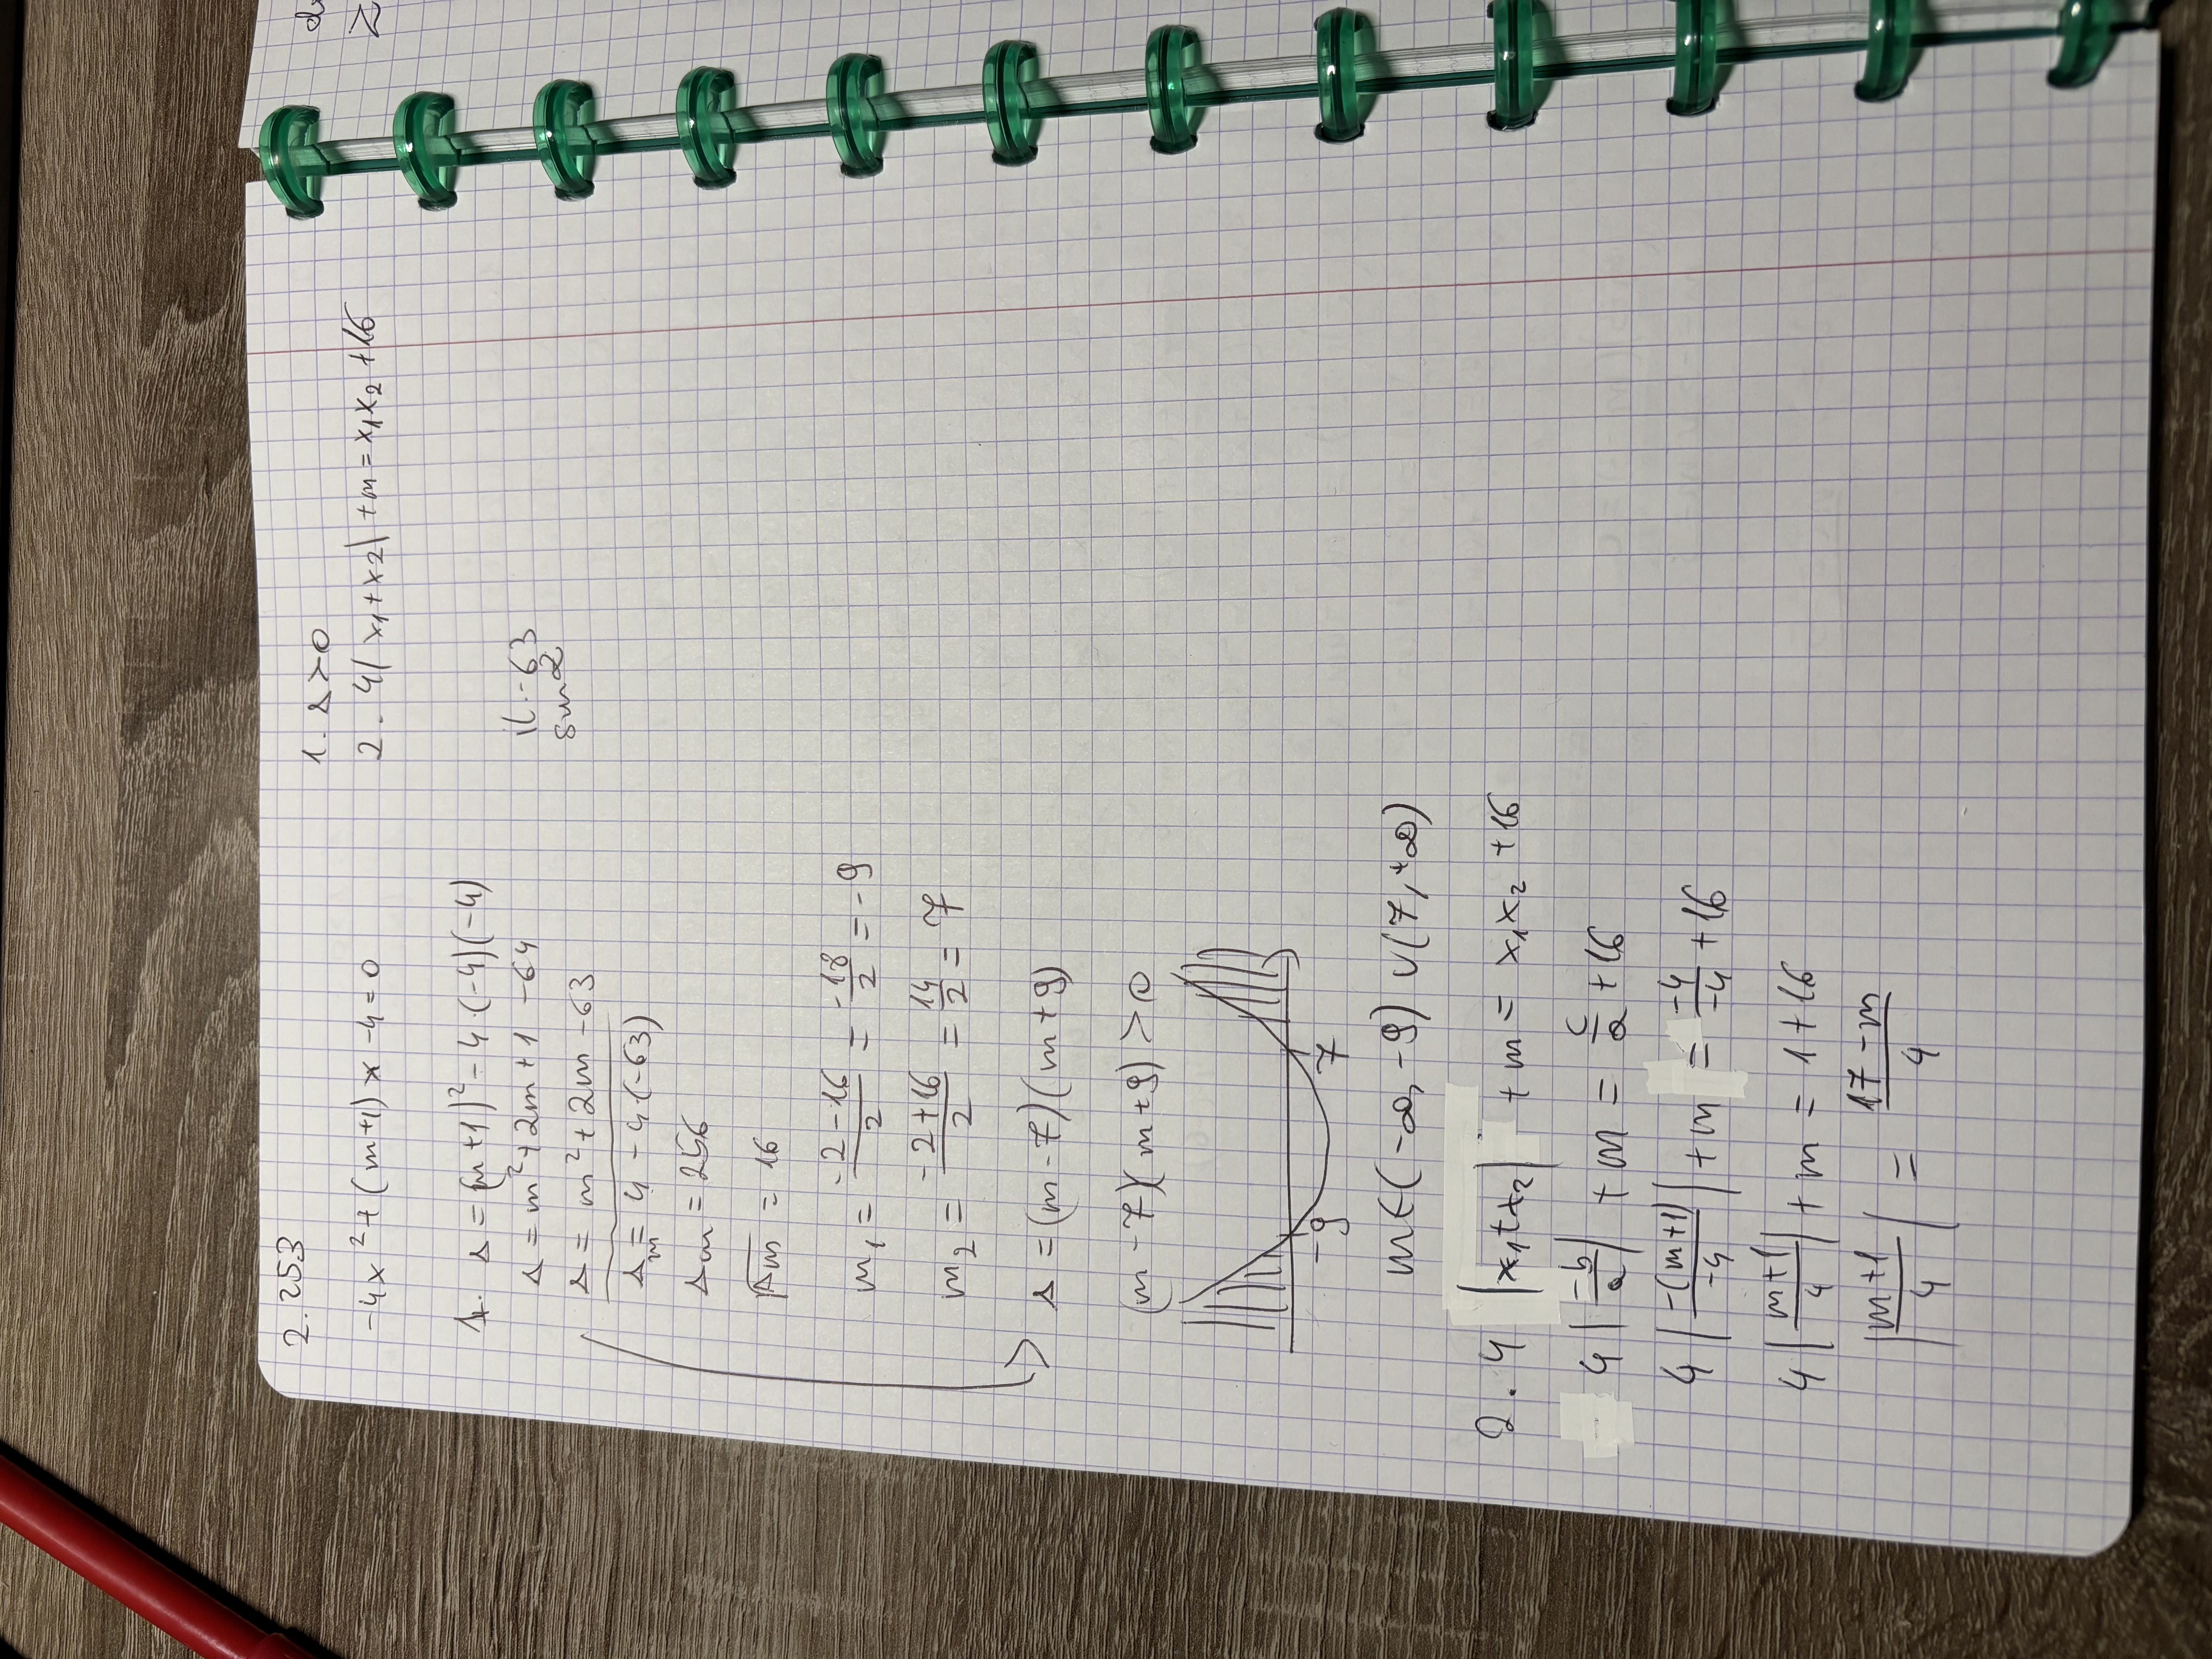 2.253
-4x² + (m+1)x - 4 = 0
1. Δ > 0
2. 4|x₁+x₂| + m = x₁x₂ + 16
1. Δ = (m+1)² - 4·(-4)(-4)
Δ = m² + 2m + 1 - 64
Δ = m² + 2m - 63
il. -63
sum 2
Δm = 4 - 4·(-63)
Δm = 256
√Δm = 16
m₁ = (-2-16)/2 = -18/2 = -9
m₂ = (-2+16)/2 = 14/2 = 7
Δ = (m-7)(m+9)
(m-7)(m+9) > 0
-9 7
m∈(-∞, -9) ∪ (7, +∞)
2. 4 |x₁+x₂| + m = x₁x₂ + 16
4 |-b/a| + m = c/a + 16
4 |-(m+1)/-4| + m = -4/-4 + 16
4 |m+1/4| + m = 1 + 16
|m+1/4| = 17-m/4